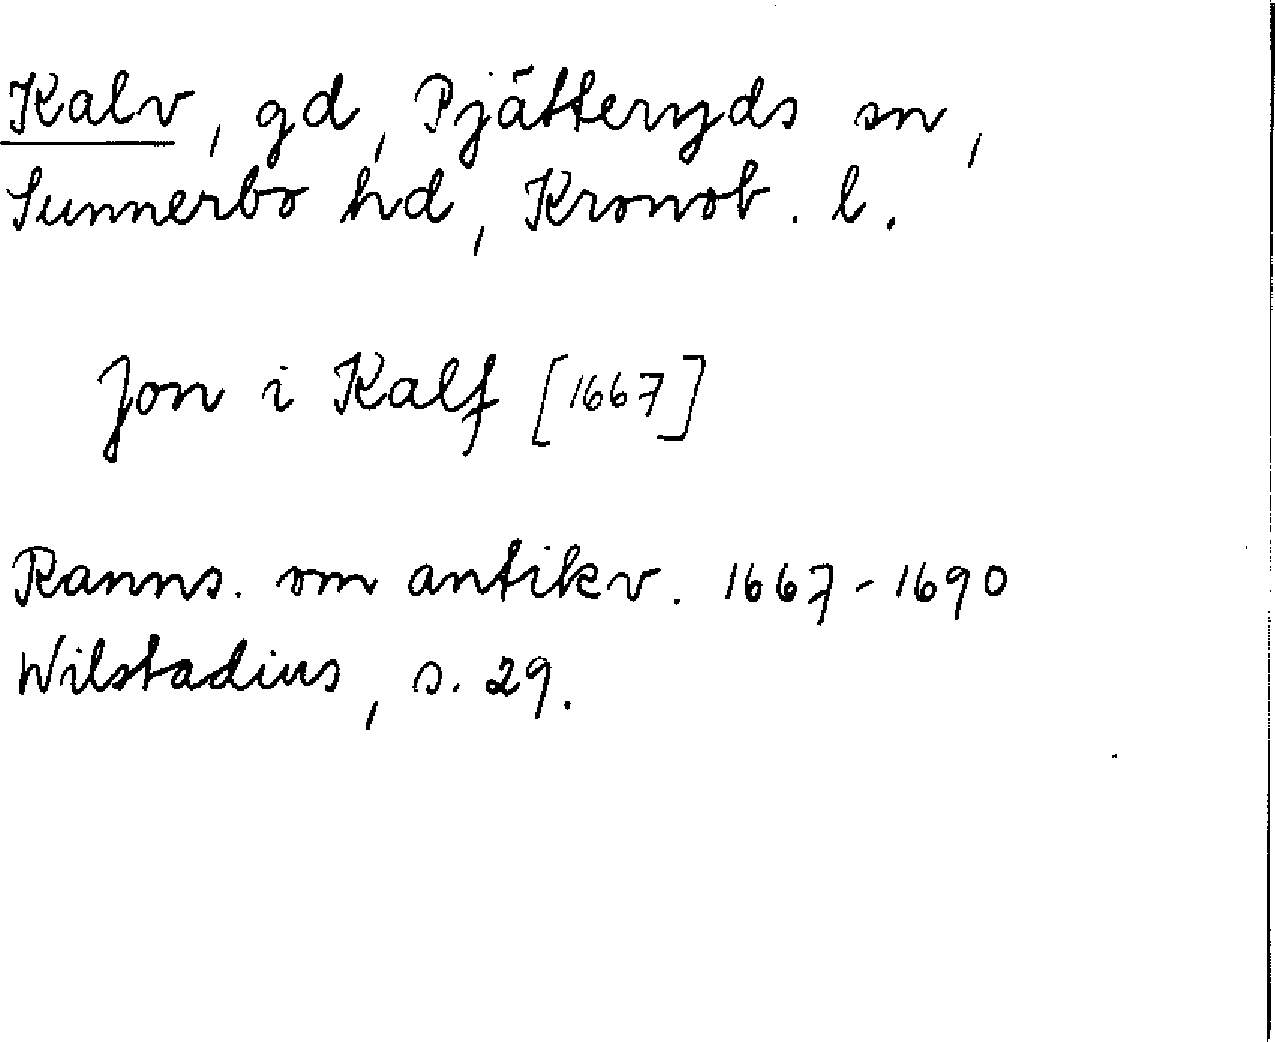 Kalv, gd, Pjätteryds sn,
Sunnerbo hd, Kronob. l.
Jon i Kalf [1667]
Ranns. om antikv. 1667-1690
Wilstadius, s. 29.